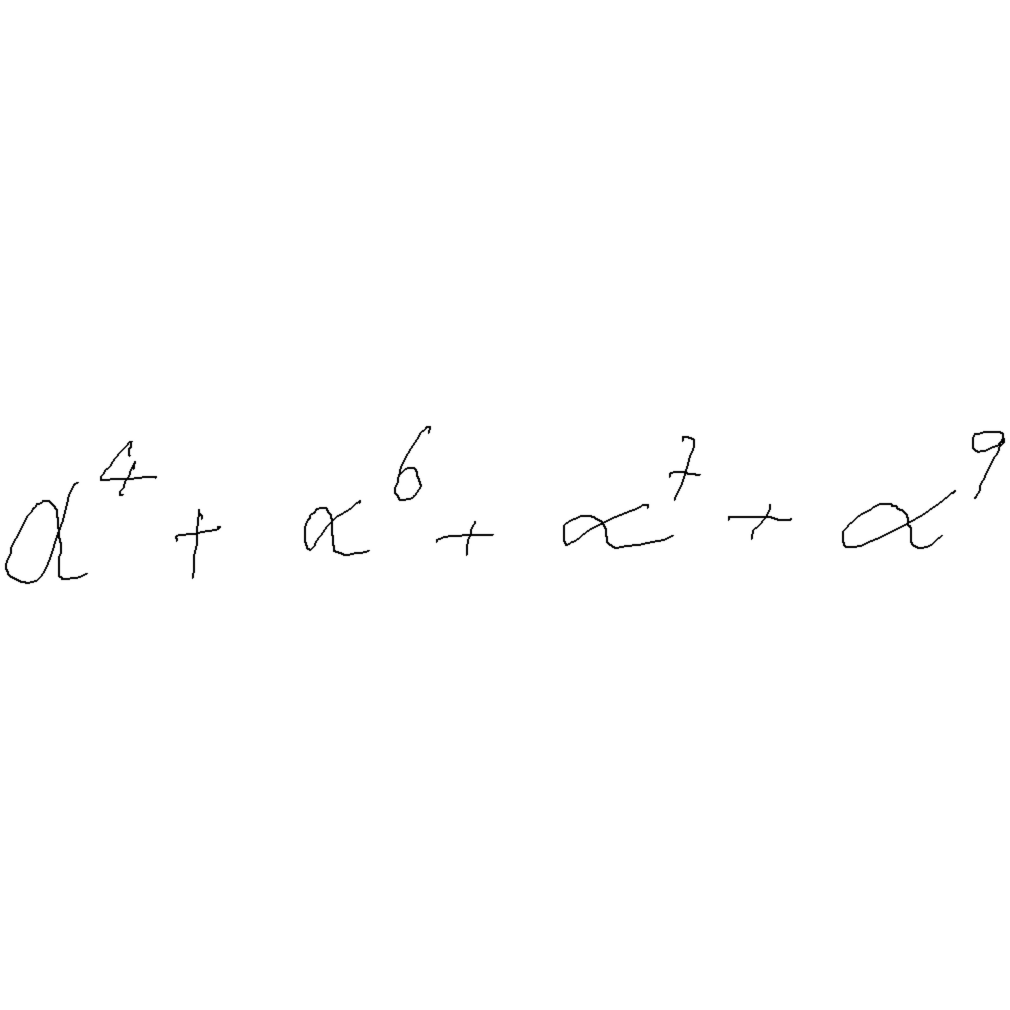 α⁴ + α⁶ + α⁷ + α⁹